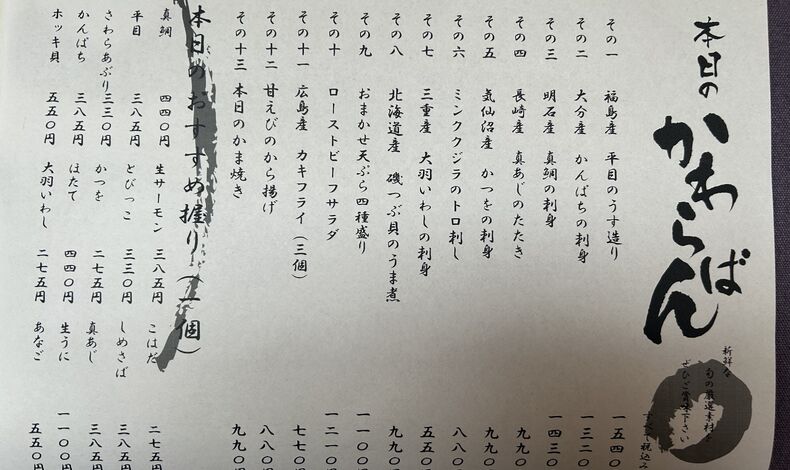 本日の
かわらばん
新鮮な
旬の厳選素材を
ぜひご賞味下さい
すべて税込み
その一 福島産 平目のうす造り 一五四〇
その二 大分産 かんぱちの刺身 一三二〇
その三 明石産 真鯛の刺身 一四三〇
その四 長崎産 真あじのたたき 九九〇
その五 気仙沼産 かつをの刺身 九九〇
その六 ミンククジラのトロ刺し 八八〇
その七 三重産 大羽いわしの刺身 五五〇
その八 北海道産 磯つぶ貝のうま煮 九九〇
その九 おまかせ天ぷら四種盛り 一一〇〇円
その十 ローストビーフサラダ 一二一〇円
その十一 広島産 カキフライ(三個) 七七〇円
その十二 甘えびのから揚げ 八八〇円
その十三 本日のかま焼き 九九〇円
本日のおすすめ握り(一個)
真鯛 四四〇円 生サーモン 三八五円 こはだ 二七五円
平目 三八五円 とびっこ 三三〇円 しめさば 三八五円
さわらあぶり 三三〇円 かつを 二七五円 真あじ 三八五円
かんぱち 三八五円 ほたて 四四〇円 生うに 一一〇〇円
ホッキ貝 五五〇円 大羽いわし 二七五円 あなご 五五〇円